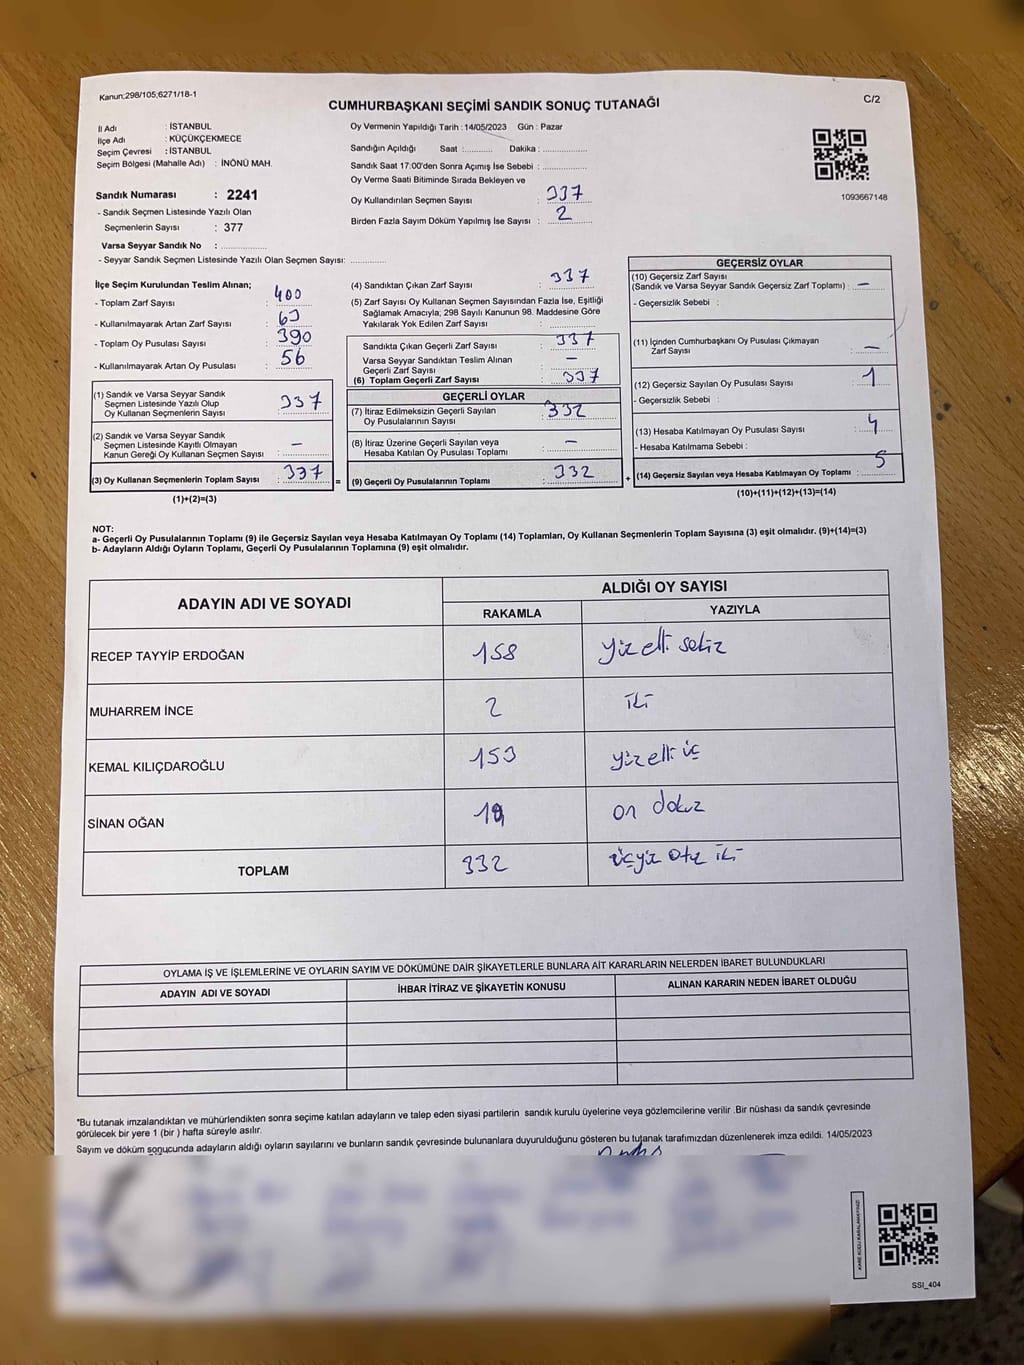 Kanun:298/105;6271/18-1
CUMHURBAŞKANI SEÇİMİ SANDIK SONUÇ TUTANAĞI
C/2
İl Adı : İSTANBUL
İlçe Adı : KÜÇÜKÇEKMECE
Seçim Çevresi : İSTANBUL
Seçim Bölgesi (Mahalle Adı) : İNÖNÜ MAH.
Sandık Numarası : 2241
- Sandık Seçmen Listesinde Yazılı Olan
Seçmenlerin Sayısı : 377
Varsa Seyyar Sandık No : ................
- Seyyar Sandık Seçmen Listesinde Yazılı Olan Seçmen Sayısı: ............
Oy Vermenin Yapıldığı Tarih : 14/05/2023 Gün : Pazar
Sandığın Açıldığı Saat :.......... Dakika : ...............
Sandık Saat 17:00'den Sonra Açımış İse Sebebi : ...............
Oy Verme Saati Bitiminde Sırada Bekleyen ve
Oy Kullandırılan Seçmen Sayısı : 337
Birden Fazla Sayım Döküm Yapılmış İse Sayısı : 2
1093667148
İlçe Seçim Kurulundan Teslim Alınan;
- Toplam Zarf Sayısı : 400
- Kullanılmayarak Artan Zarf Sayısı : 63
- Toplam Oy Pusulası Sayısı : 390
- Kullanılmayarak Artan Oy Pusulası : 56
(1) Sandık ve Varsa Seyyar Sandık
Seçmen Listesinde Yazılı Olup
Oy Kullanan Seçmenlerin Sayısı : 337
(2) Sandık ve Varsa Seyyar Sandık
Seçmen Listesinde Kayıtlı Olmayan
Kanun Gereği Oy Kullanan Seçmen Sayısı : –
(3) Oy Kullanan Seçmenlerin Toplam Sayısı : 337
(1)+(2)=(3)
=
(4) Sandıktan Çıkan Zarf Sayısı : 337
(5) Zarf Sayısı Oy Kullanan Seçmen Sayısından Fazla İse, Eşitliği
Sağlamak Amacıyla; 298 Sayılı Kanunun 98. Maddesine Göre
Yakılarak Yok Edilen Zarf Sayısı : ...............
Sandıkta Çıkan Geçerli Zarf Sayısı : 337
Varsa Seyyar Sandıktan Teslim Alınan
Geçerli Zarf Sayısı : –
(6) Toplam Geçerli Zarf Sayısı : 337
GEÇERLİ OYLAR
(7) İtiraz Edilmeksizin Geçerli Sayılan
Oy Pusulalarının Sayısı : 332
(8) İtiraz Üzerine Geçerli Sayılan veya
Hesaba Katılan Oy Pusulası Toplamı : –
(9) Geçerli Oy Pusulalarının Toplamı : 332
+
GEÇERSİZ OYLAR
(10) Geçersiz Zarf Sayısı
(Sandık ve Varsa Seyyar Sandık Geçersiz Zarf Toplamı) : –
- Geçersizlik Sebebi :
(11) İçinden Cumhurbaşkanı Oy Pusulası Çıkmayan
Zarf Sayısı : –
(12) Geçersiz Sayılan Oy Pusulası Sayısı : 1
- Geçersizlik Sebebi :
(13) Hesaba Katılmayan Oy Pusulası Sayısı : 4
- Hesaba Katılmama Sebebi :
(14) Geçersiz Sayılan veya Hesaba Katılmayan Oy Toplamı : 5
(10)+(11)+(12)+(13)=(14)
NOT:
a- Geçerli Oy Pusulalarının Toplamı (9) ile Geçersiz Sayılan veya Hesaba Katılmayan Oy Toplamı (14) Toplamları, Oy Kullanan Seçmenlerin Toplam Sayısına (3) eşit olmalıdır. (9)+(14)=(3)
b- Adayların Aldığı Oyların Toplamı, Geçerli Oy Pusulalarının Toplamına (9) eşit olmalıdır.
ADAYIN ADI VE SOYADI
ALDIĞI OY SAYISI
RAKAMLA YAZIYLA
RECEP TAYYİP ERDOĞAN 158 yüz elli sekiz
MUHARREM İNCE 2 iki
KEMAL KILIÇDAROĞLU 153 yüz elli üç
SİNAN OĞAN 19 on dokuz
TOPLAM 332 üçyüz otuz iki
OYLAMA İŞ VE İŞLEMLERİNE VE OYLARIN SAYIM VE DÖKÜMÜNE DAİR ŞİKAYETLERLE BUNLARA AİT KARARLARIN NELERDEN İBARET BULUNDUKLARI
ADAYIN ADI VE SOYADI İHBAR İTİRAZ VE ŞİKAYETİN KONUSU ALINAN KARARIN NEDEN İBARET OLDUĞU
"Bu tutanak imzalandıktan ve mühürlendikten sonra seçime katılan adayların ve talep eden siyasi partilerin sandık kurulu üyelerine veya gözlemcilerine verilir .Bir nüshası da sandık çevresinde
görülecek bir yere 1 (bir ) hafta süreyle asılır.
Sayım ve döküm sonucunda adayların aldığı oyların sayılarını ve bunların sandık çevresinde bulunanlara duyurulduğunu gösteren bu tutanak tarafımızdan düzenlenerek imza edildi. 14/05/2023
KARE KODU KARALAMAYINIZ!
SSI_404